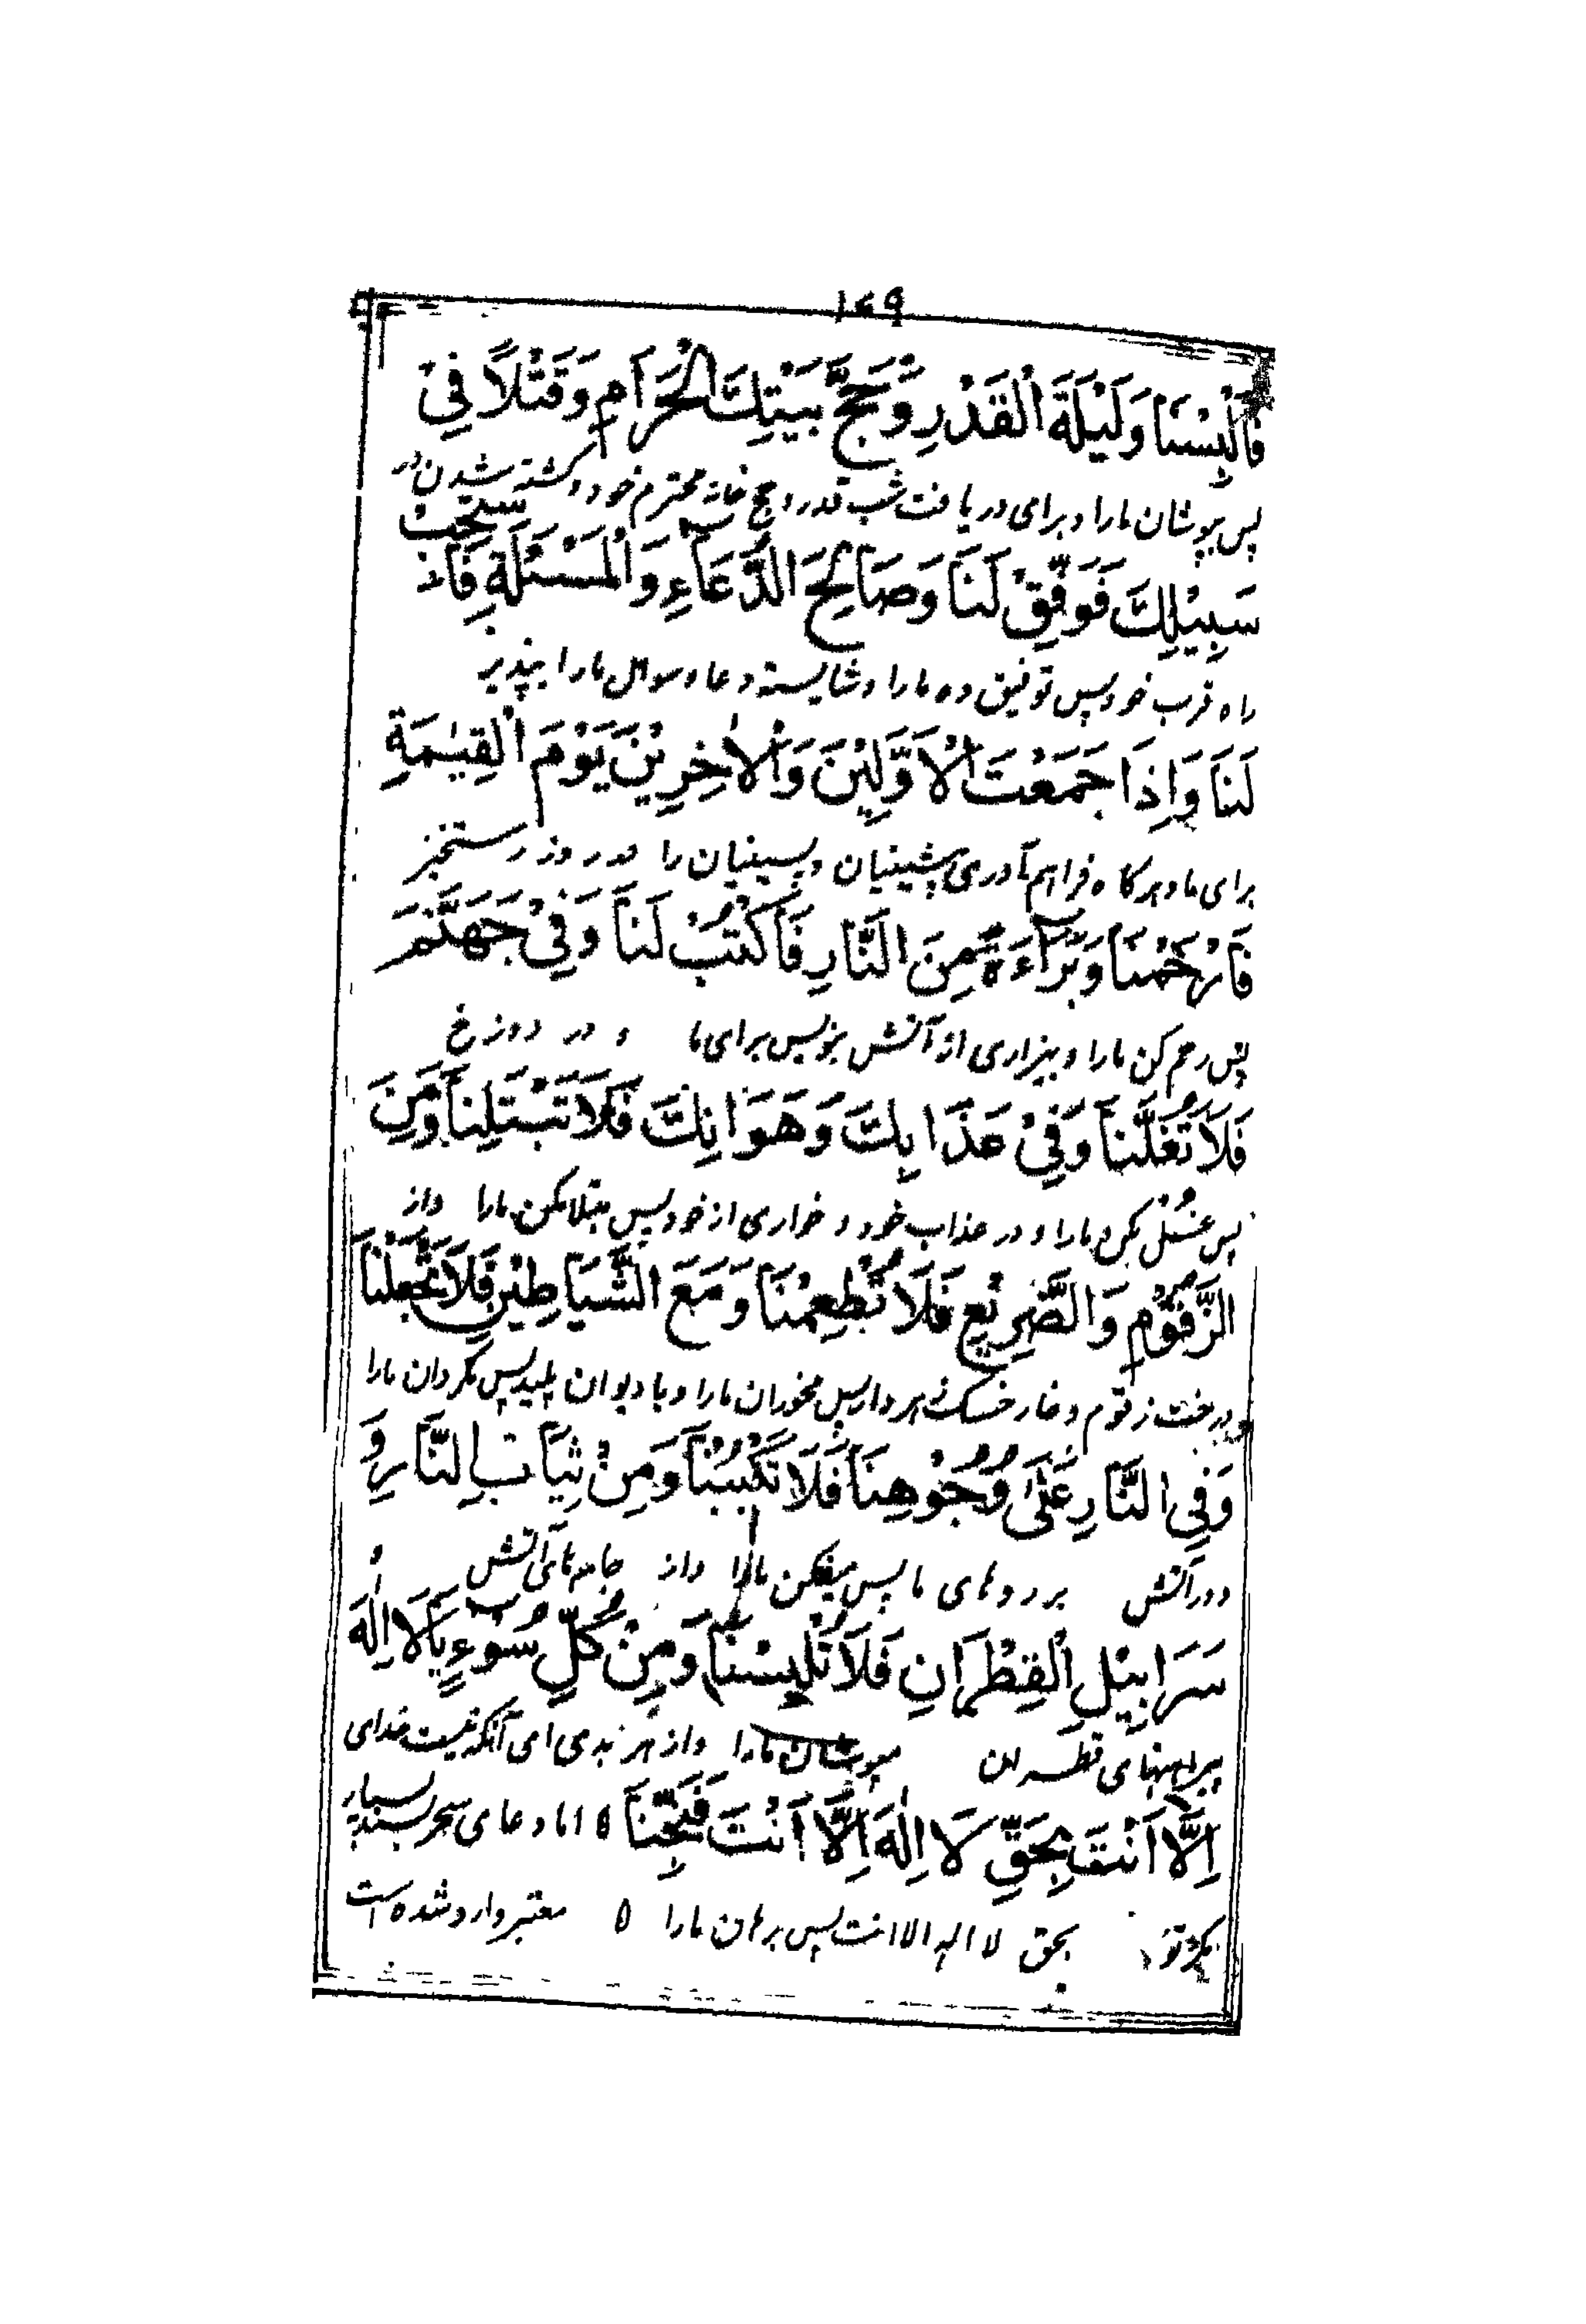 ۱۷۹
فَاَلْبِسْنَا وَلَيْلَةَ الْقَدْرِ وَحَجَّ بَيْتِكَ الْحَرَامِ وَقَتْلًا فِيْ
پس بپوشان مارا و برای دریافت شب قدر و حج خانه محترم خود و کشته شدن در
سَبِيْلِكَ فَوَفِّقْ لَنَا وَصَالِحَ الدُّعَاءِ وَالْمَسْئَلَةِ فَاسْتَجِبْ
راه قرب خود پس توفیق ده مارا و شایسته دعا و سوال مارا بپذیر
لَنَا وَاِذَا جَمَعْتَ الْاَوَّلِيْنَ وَالْاٰخِرِيْنَ يَوْمَ الْقِيٰمَةِ
برای ما و هرگاه فراهم آوری پیشینیان و پسینیان را در روز رستخیز
فَارْحَمْنَا وَبَرَآءَةً مِنَ النَّارِ فَاكْتُبْ لَنَا وَفِيْ جَهَنَّمَ
پس رحم کن مارا و بیزاری از آتش بنویس برای ما و در دوزخ
فَلَا تَغُلَّنَا وَفِيْ عَذَابِكَ وَهَوَانِكَ فَلَا تَبْتَلِنَا وَمِنَ
پس غل مکن مارا و در عذاب خود و خواری از خود پس مبتلا مکن مارا و از
الزَّقُّوْمِ وَالضَّرِيْعِ فَلَا تُطْعِمْنَا وَمَعَ الشَّيَاطِيْنِ فَلَا تَجْعَلْنَا
درخت زقوم و خار خسک پس مخوران مارا و با دیوان پلید پس مگردان مارا
وَفِي النَّارِ عَلٰى وُجُوْهِنَا فَلَا تَكْبُبْنَا وَمِنْ ثِيَابِ النَّارِ وَ
و در آتش بر روهای ما پس میفکن مارا و از جامه های آتش و
سَرَابِيْلِ الْقَطِرَانِ فَلَا تُلْبِسْنَا وَمِنْ كُلِّ سُوْءٍ يَا لَا اِلٰهَ
پیراهنهای قطران مپوشان مارا و از هر بدی ای آنکه نیست خدای
اِلَّا اَنْتَ بِحَقِّ لَا اِلٰهَ اِلَّا اَنْتَ فَنَجِّنَا ۵ اما دعای سحر بسند بسیار
مگر تو بحق لا اله الا انت پس برهان مارا ۵ معتبر وارد شده است